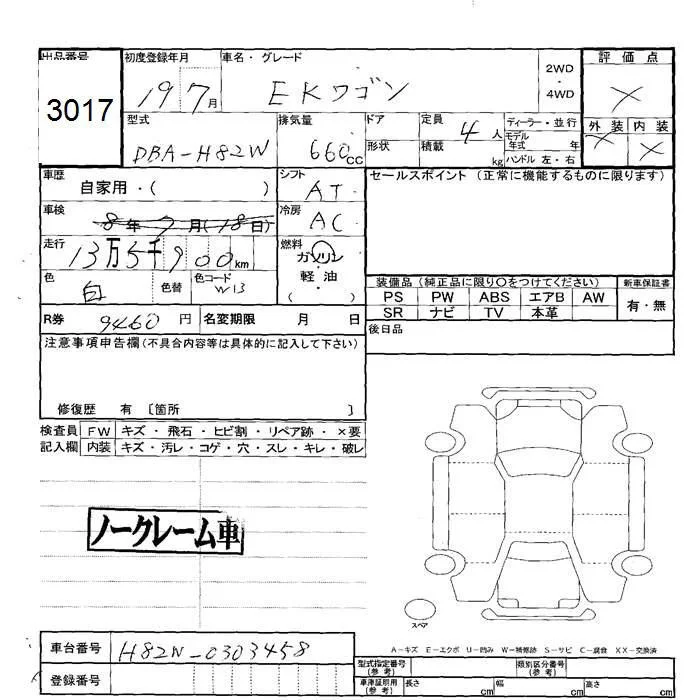 出品番号 初度登録年月 車名・グレード 2WD ・ 4WD 評価点
3017 19 7月 EKワゴン ×
型式 排気量 ドア 定員 ディーラー・並行 外装 内装
DBA-H82W 660cc 形状 積載 4人 kg モデル年式 年 ハンドル 左・右 × ×
車歴 自家用・( ) シフト AT セールスポイント (正常に機能するものに限ります)
車検 8年7月(18日) 冷房 AC
走行 13万5千900km 燃料 ガソリン ・ 軽油 ( )
色 白 色替 色コード W13
装備品 (純正品に限り○をつけてください) 新車保証書
PS PW ABS エアB AW 有・無
SR ナビ TV 本革
R券 9460円 名変期限 月 日 後日品
注意事項申告欄(不具合内容等は具体的に記入して下さい)
修復歴 有 〔箇所 〕
検査員 FW キズ・飛石・ヒビ割・リペア跡・×要
記入欄 内装 キズ・汚レ・コゲ・穴・スレ・キレ・破レ
ノークレーム車
スペア
A-キズ E-エクボ U-凹み W-補修跡 S-サビ C-腐食 XX-交換済
車台番号 H82W-0303458
型式指定番号(参考) 類別区分番号(参考)
登録番号 車庫証明用(参考) 長さ cm 幅 cm 高さ cm